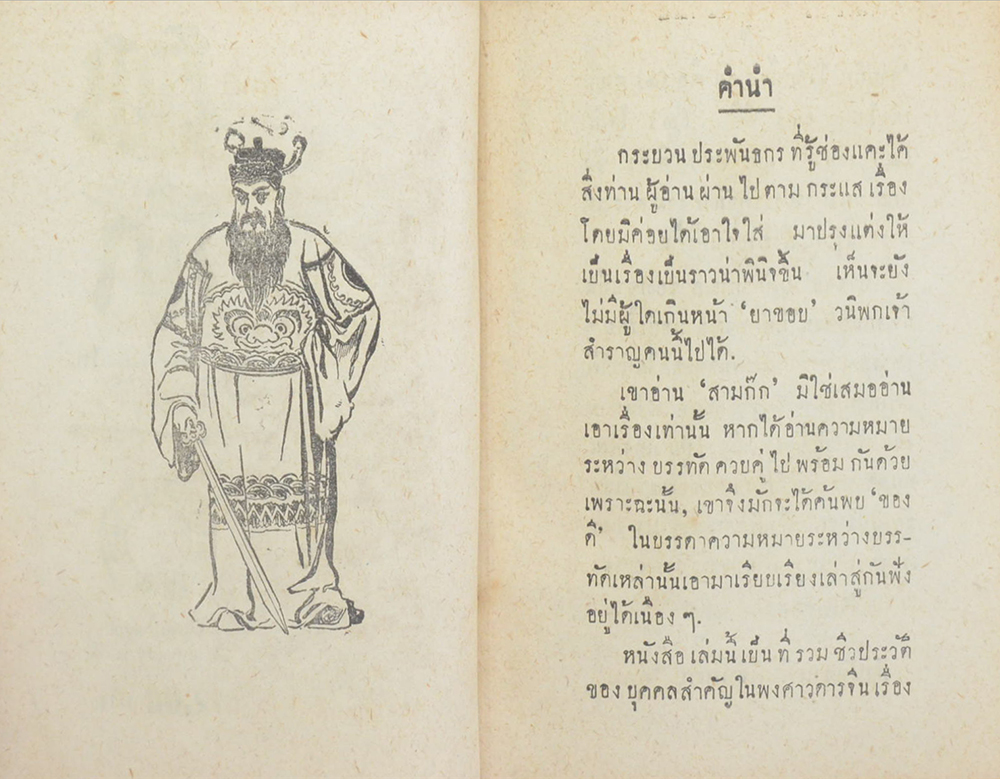 คำนำ
กระบวน ประพันธกร ที่รู้ช่องแคะไค้
สิ่งท่าน ผู้อ่าน ผ่าน ไป ตาม กระแส เรื่อง
โดยมิค่อยได้เอาใจใส่ มาปรุงแต่งให้
เป็นเรื่องเป็นราวน่าพินิจขึ้น เห็นจะยัง
ไม่มีผู้ใดเกินหน้า ‘ยาขอบ’ วนิพกเจ้า
สำราญคนนี้ไปได้.
เขาอ่าน ‘สามก๊ก’ มิใช่เสมออ่าน
เอาเรื่องเท่านั้น หากได้อ่านความหมาย
ระหว่าง บรรทัด ควบคู่ ไป พร้อม กันด้วย
เพราะฉะนั้น, เขาจึงมักจะได้ค้นพบ ‘ของ
ดี’ ในบรรดาความหมายระหว่างบรร-
ทัดเหล่านั้นเอามาเรียบเรียงเล่าสู่กันฟัง
อยู่ได้เนือง ๆ.
หนังสือ เล่มนี้ เป็น ที่ รวม ชีวประวัติ
ของ บุคคลสำคัญในพงศาวดารจีน เรื่อง